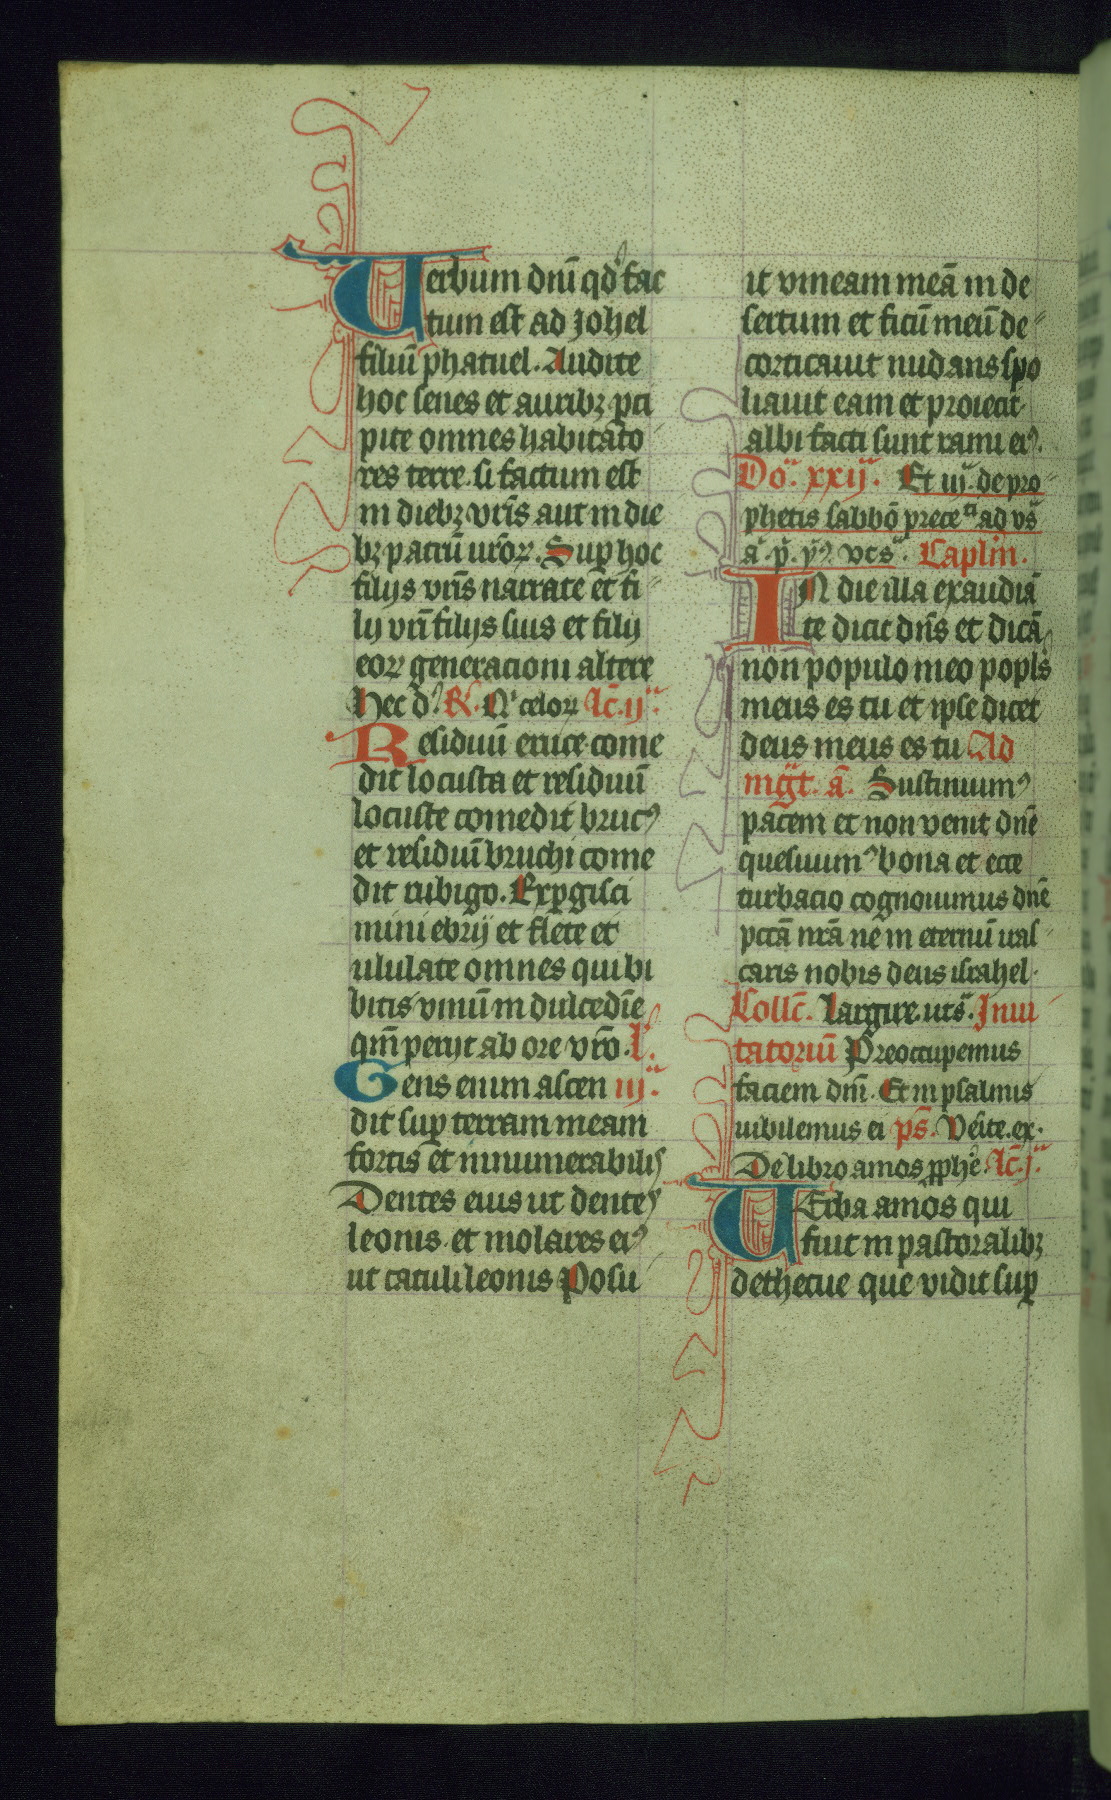 Verbum dnī qd' fac
tum est ad Johel
filiū phatuel. Audite
hoc senes et auribꝫ ꝑci
pite omnes habitato
res terre. si factum est
in diebꝫ vr̄is aut in die
bꝫ patrū vr̄oꝝ. Suꝑ hoc
filijs vr̄is narrate et fi
lij vr̄i filijs suis et filij
eoꝝ generacioni altere
Hec d'. R̸. Nᵒ celoꝝ Lc̄. ij.ᵃ
Residuū eruce come
dit locusta et residuū
locuste comedit brucꝰ
et residuū bruchi come
dit rubigo. Exꝑgisci
mini ebrij et flete et
ululate omnes qui bi
bitis vinū in dulcedīe
qm̄ perijt ab ore vr̄o. L'.
Gens enim ascen iij.ᵃ
dit suꝑ terram meam
fortis et innumerabilis
Dentes eius ut dentes
leonis. et molares eiꝰ
ut catuli leonis Posu
it vineam meā in de
sertum et ficū meū de
corticauit nudans spo
liauit eam et proiecit
albi facti sunt rami eiꝰ.
Do.ᵃ xxij.ᵃ Et iij.ᵃ de pro
phetis sabbō prece.ᵗⁱ ad vs̄
a.ᵃ p̄. yꝰ. vts.ᵃ Caplm̄.
IN die illa exaudiā
te dicit dn̄s et dicā
non populo meo popl's
meus es tu et ipse dicet
deus meus es tu Ad
mgt̄. ā. Sustinuimꝰ
pacem et non venit dn̄e
quesiuimꝰ bona et ecce
turbacio cognouimus dn̄e
pctā nr̄a ne in eternū iras
caris nobis deus israhel.
Collc̄. Largire. uts.ᵃ Inui
tatoriū Preoccupemus
faciem dnī. Et in psalmis
iubilemus ei ps̄. Venite. ex.
De libro amos ꝓphe. Lc̄. j.ᵃ
VErba amos qui
fuit in pastoralibꝫ
de thecue que vidit suꝑ